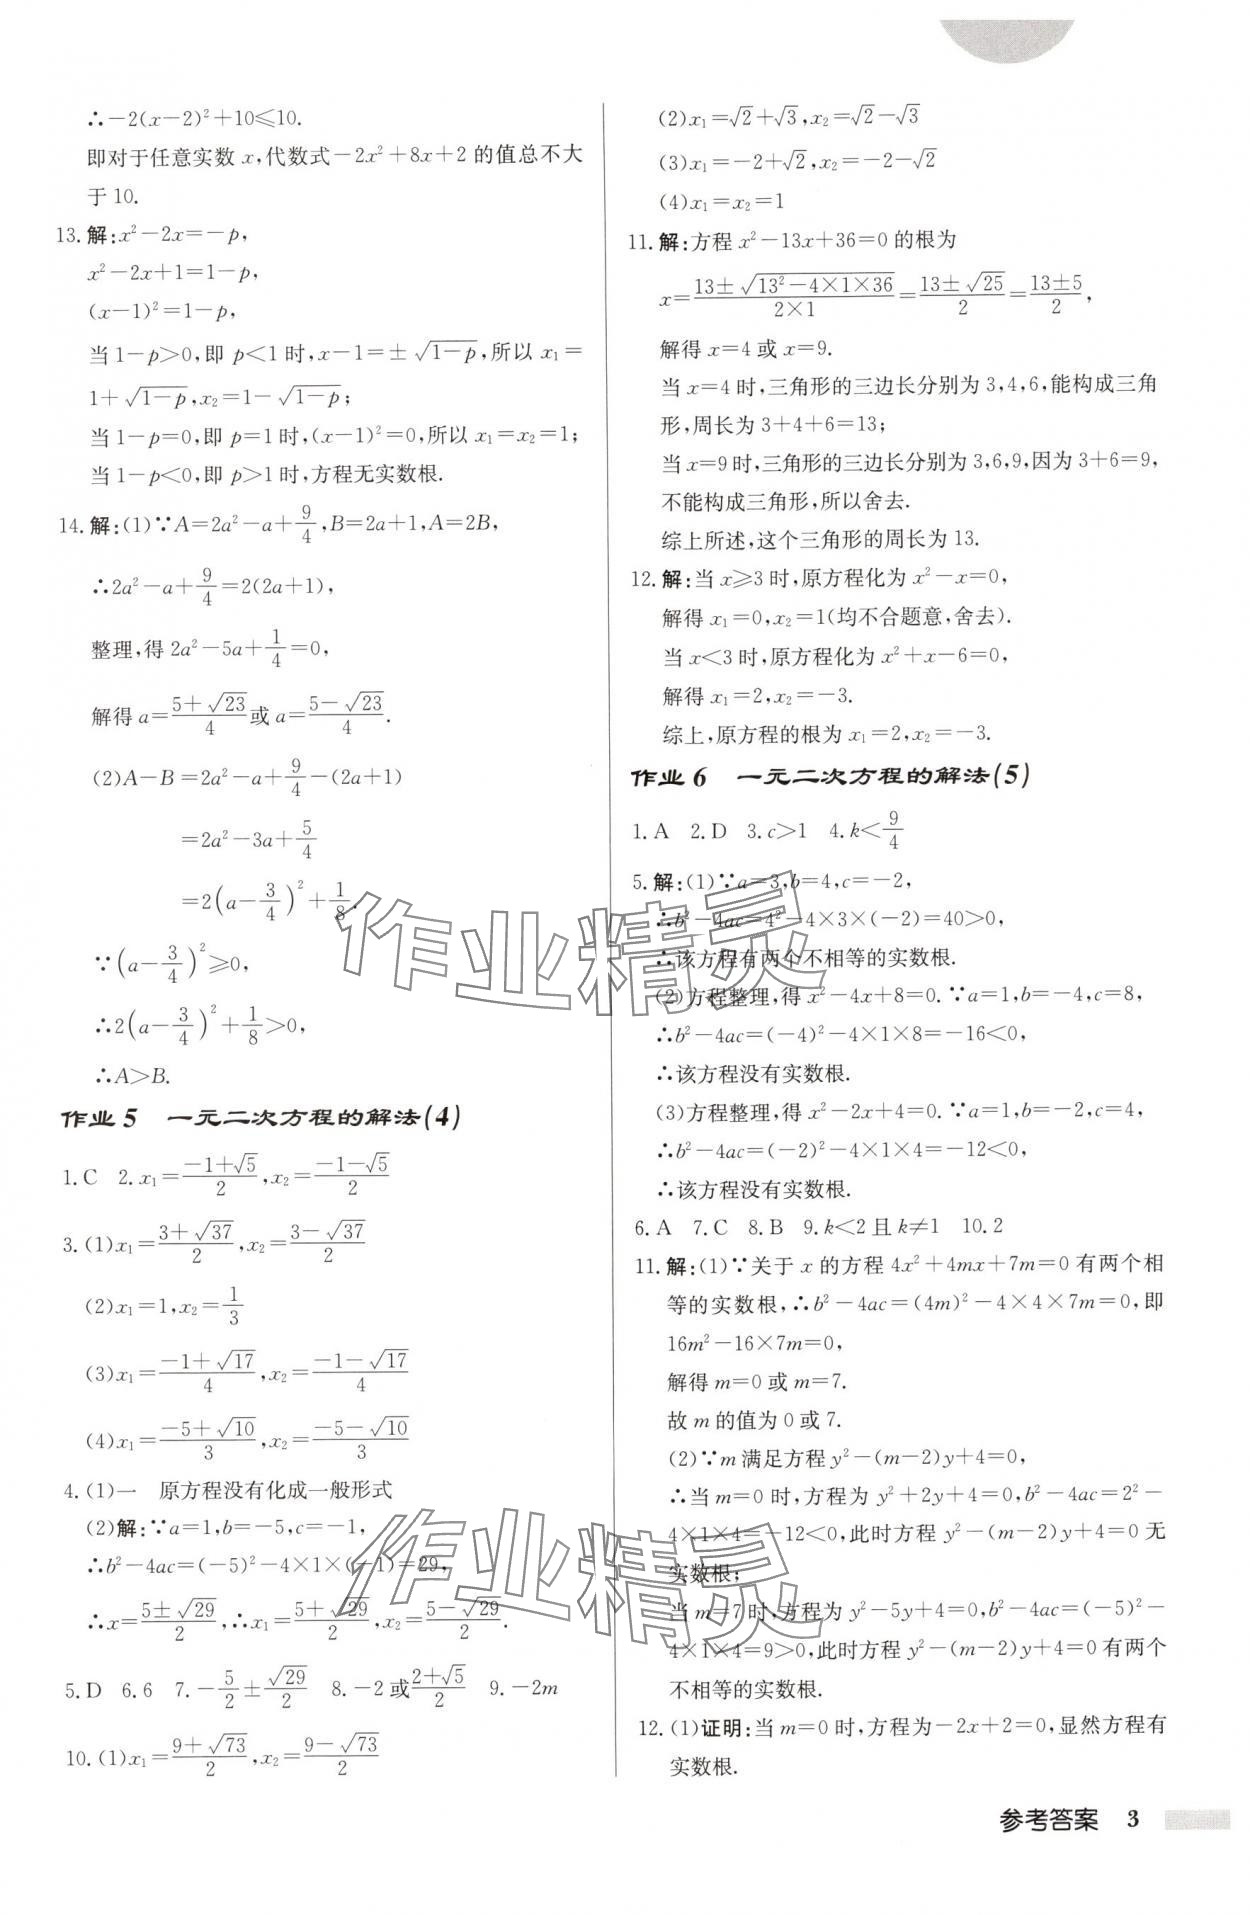 ∴-2(x-2)²+10≤10.
即对于任意实数 x,代数式-2x²+8x+2 的值总不大
于 10.
13. 解:x²-2x=-p,
x²-2x+1=1-p,
(x-1)²=1-p,
当 1-p>0,即 p<1 时,x-1=±√(1-p),所以 x₁=
1+√(1-p),x₂=1-√(1-p);
当 1-p=0,即 p=1 时,(x-1)²=0,所以 x₁=x₂=1;
当 1-p<0,即 p>1 时,方程无实数根.
14. 解:(1)∵A=2a²-a+9/4,B=2a+1,A=2B,
∴2a²-a+9/4=2(2a+1),
整理,得 2a²-5a+1/4=0,
解得 a=(5+√23)/4或 a=(5-√23)/4.
(2)A-B=2a²-a+9/4-(2a+1)
=2a²-3a+5/4
=2(a-3/4)²+1/8.
∵(a-3/4)²≥0,
∴2(a-3/4)²+1/8>0,
∴A>B.
作业 5 一元二次方程的解法(4)
1. C 2. x₁=(-1+√5)/2,x₂=(-1-√5)/2
3. (1)x₁=(3+√37)/2,x₂=(3-√37)/2
(2)x₁=1,x₂=1/3
(3)x₁=(-1+√17)/4,x₂=(-1-√17)/4
(4)x₁=(-5+√10)/3,x₂=(-5-√10)/3
4. (1)一 原方程没有化成一般形式
(2)解:∵a=1,b=-5,c=-1,
∴b²-4ac=(-5)²-4×1×(-1)=29,
∴x=(5±√29)/2,∴x₁=(5+√29)/2,x₂=(5-√29)/2.
5. D 6. 6 7. -5/2±√29/2 8. -2 或(2+√5)/2 9. -2m
10. (1)x₁=(9+√73)/2,x₂=(9-√73)/2
(2)x₁=√2+√3,x₂=√2-√3
(3)x₁=-2+√2,x₂=-2-√2
(4)x₁=x₂=1
11. 解:方程 x²-13x+36=0 的根为
x=(13±√(13²-4×1×36))/(2×1)=(13±√25)/2=(13±5)/2,
解得 x=4 或 x=9.
当 x=4 时,三角形的三边长分别为 3,4,6,能构成三角
形,周长为 3+4+6=13;
当 x=9 时,三角形的三边长分别为 3,6,9,因为 3+6=9,
不能构成三角形,所以舍去.
综上所述,这个三角形的周长为 13.
12. 解:当 x≥3 时,原方程化为 x²-x=0,
解得 x₁=0,x₂=1(均不合题意,舍去).
当 x<3 时,原方程化为 x²+x-6=0,
解得 x₁=2,x₂=-3.
综上,原方程的根为 x₁=2,x₂=-3.
作业 6 一元二次方程的解法(5)
1. A 2. D 3. c>1 4. k<9/4
5. 解:(1)∵a=3,b=4,c=-2,
∴b²-4ac=4²-4×3×(-2)=40>0,
∴该方程有两个不相等的实数根.
(2)方程整理,得 x²-4x+8=0. ∵a=1,b=-4,c=8,
∴b²-4ac=(-4)²-4×1×8=-16<0,
∴该方程没有实数根.
(3)方程整理,得 x²-2x+4=0. ∵a=1,b=-2,c=4,
∴b²-4ac=(-2)²-4×1×4=-12<0,
∴该方程没有实数根.
6. A 7. C 8. B 9. k<2 且 k≠1 10. 2
11. 解:(1)∵关于 x 的方程 4x²+4mx+7m=0 有两个相
等的实数根,∴b²-4ac=(4m)²-4×4×7m=0,即
16m²-16×7m=0,
解得 m=0 或 m=7.
故 m 的值为 0 或 7.
(2)∵m 满足方程 y²-(m-2)y+4=0,
∴当 m=0 时,方程为 y²+2y+4=0,b²-4ac=2²-
4×1×4=-12<0,此时方程 y²-(m-2)y+4=0 无
实数根;
当 m=7 时,方程为 y²-5y+4=0,b²-4ac=(-5)²-
4×1×4=9>0,此时方程 y²-(m-2)y+4=0 有两个
不相等的实数根.
12. (1)证明:当 m=0 时,方程为-2x+2=0,显然方程有
实数根.
作业精灵
作业精灵
参考答案 3